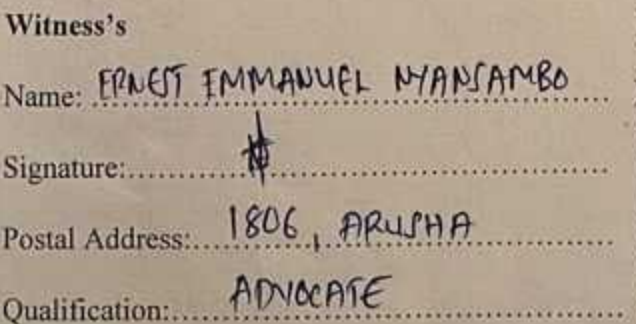 Witness's
Name: ERNEST EMMANUEL NYANSAMBO
Signature:..................
Postal Address:....1806, ARUSHA
Qualification:......ADVOCATE